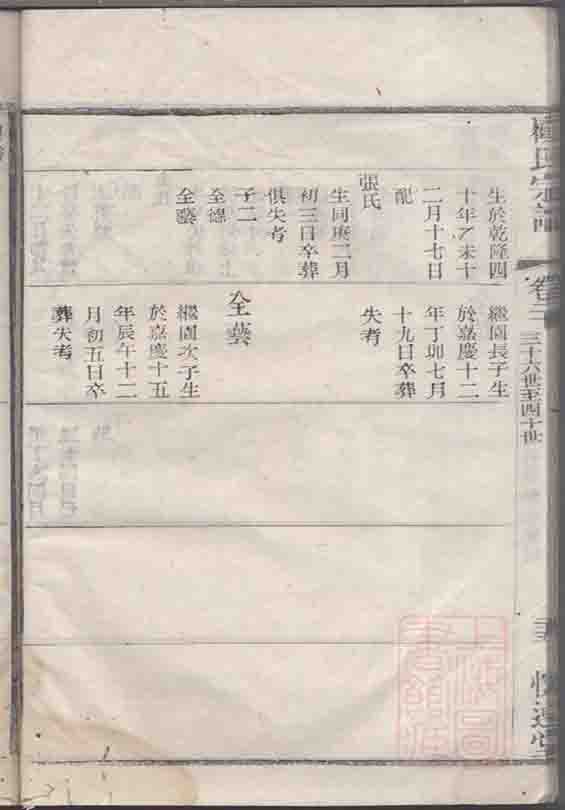 氏宗譜
卷三
三十六世至四十世
生於乾隆四
十年乙未十
二月十七日
配
張氏
生同庚二月
初三日卒葬
俱失考
子二
全德
全藝
繼園長子生
於嘉慶十二
年丁卯七月
十九日卒葬
失考
全藝
繼園次子生
於嘉慶十五
年辰午十二
月初五日卒
葬失考